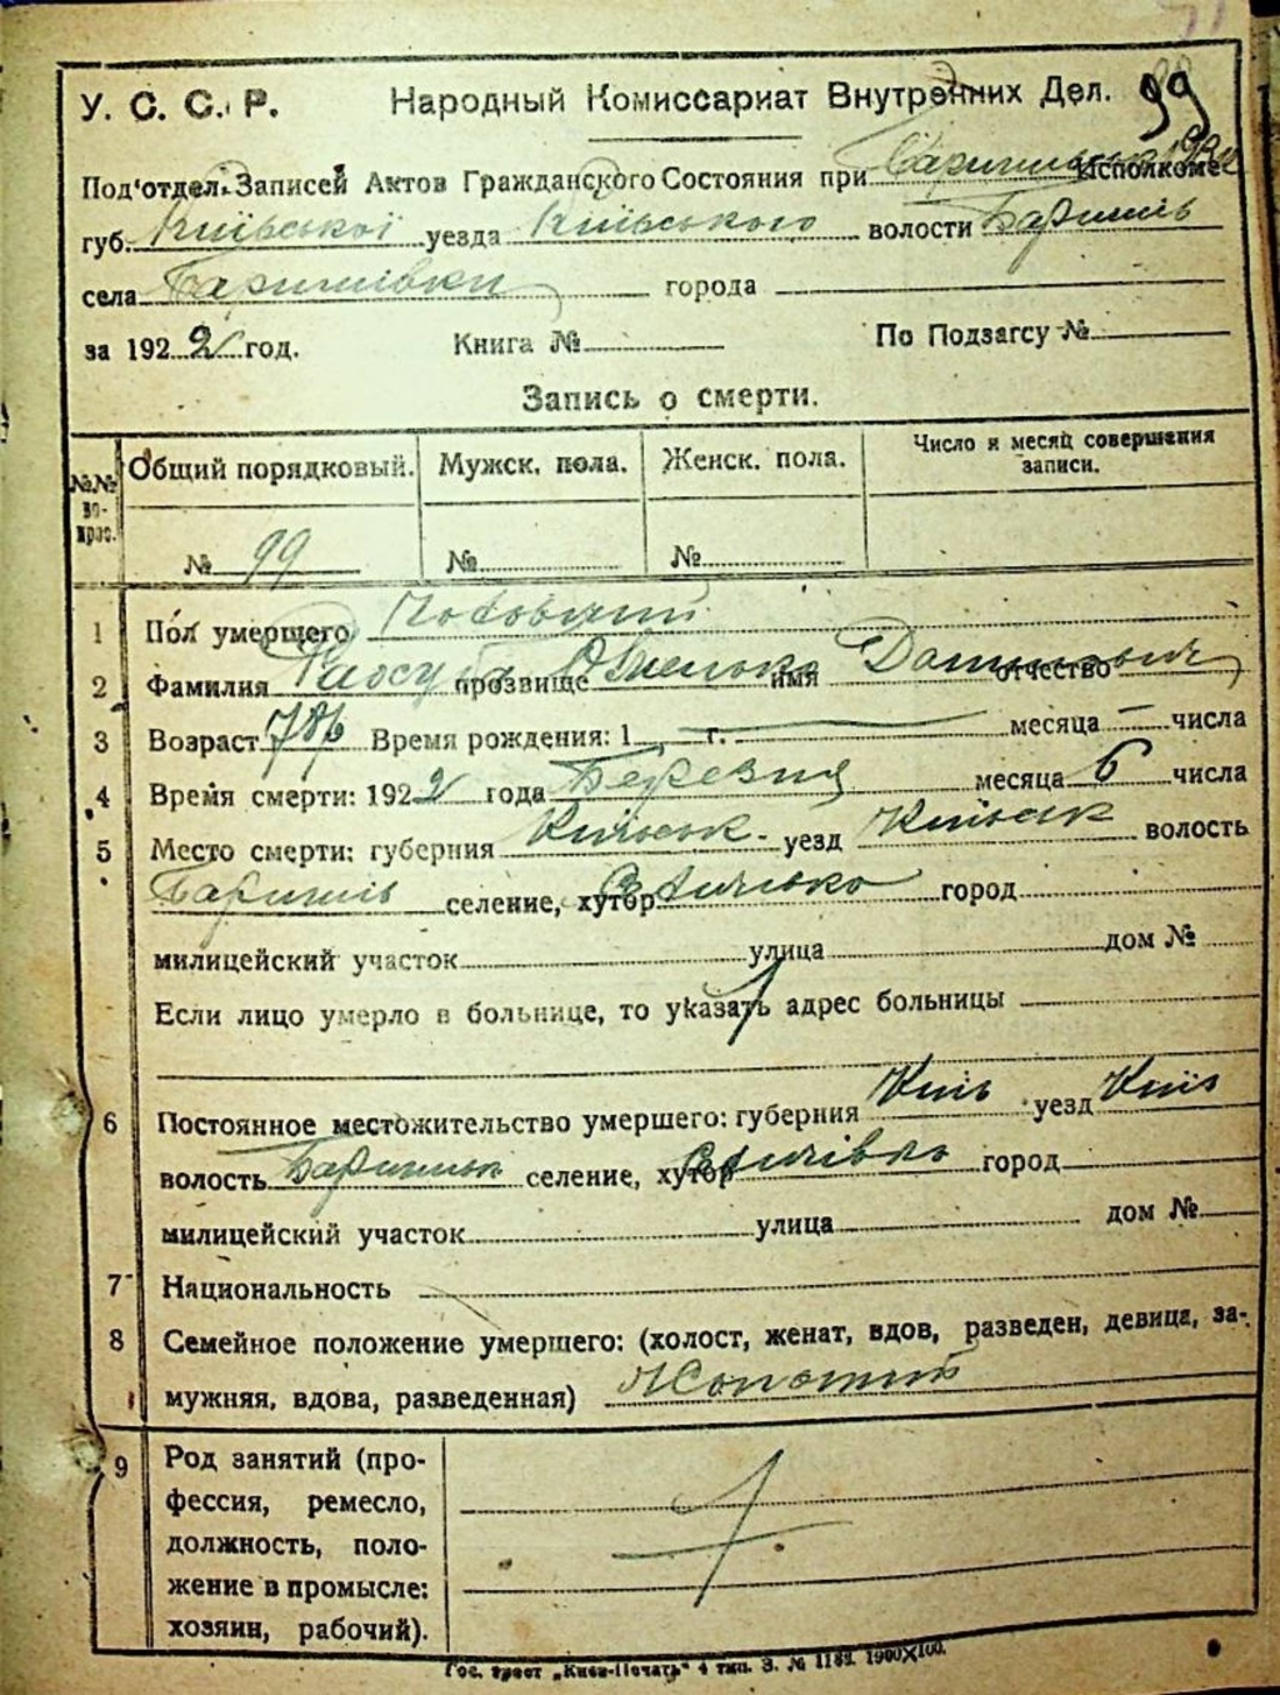 У. С. С. Р. Народный Комиссариат Внутренних Дел. 99
Под'отдел Записей Актов Гражданского Состояния при Исполкоме
губ. Київської уезда Київського волости Баришів
села Баришівки города
за 1922 год. Книга № По Подзагсу №
Запись о смерти.
№№ вопрос. Общий порядковый. Мужск. пола. Женск. пола. Число и месяц совершения записи.
№ 99 № №
1 Пол умершего Чоловічий
2 Фамилия прозвище имя отчество
3 Возраст 78 р Время рождения: 1 г. месяца — числа
4 Время смерти: 1922 года Березня месяца 6 числа
5 Место смерти: губерния уезд волость
Баришів селение, хутор город
милицейский участок улица дом №
Если лицо умерло в больнице, то указать адрес больницы
6 Постоянное местожительство умершего: губерния Київ уезд Київ
волость селение, хутор город
милицейский участок улица дом №
7 Национальность
8 Семейное положение умершего: (холост, женат, вдов, разведен, девица, за-
мужняя, вдова, разведенная) Жонатий
9 Род занятий (про-
фессия, ремесло,
должность, поло-
жение в промысле:
хозяин, рабочий).
Гос. трест „Киев-Печать" 4 тип. З. № 1182. 1900×100.